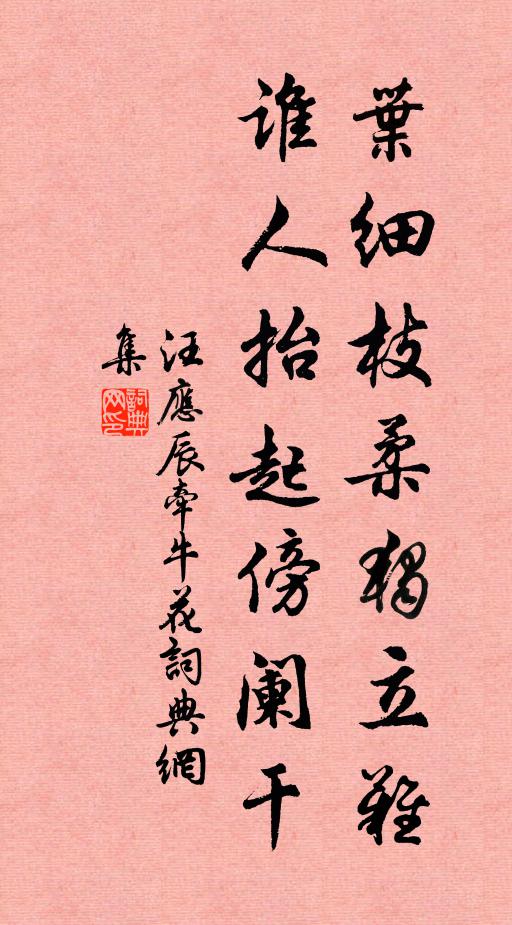 葉細枝柔獨立難
谁人抬起傍阑干
汪應辰牽牛花詞典網
集
詞典
网印